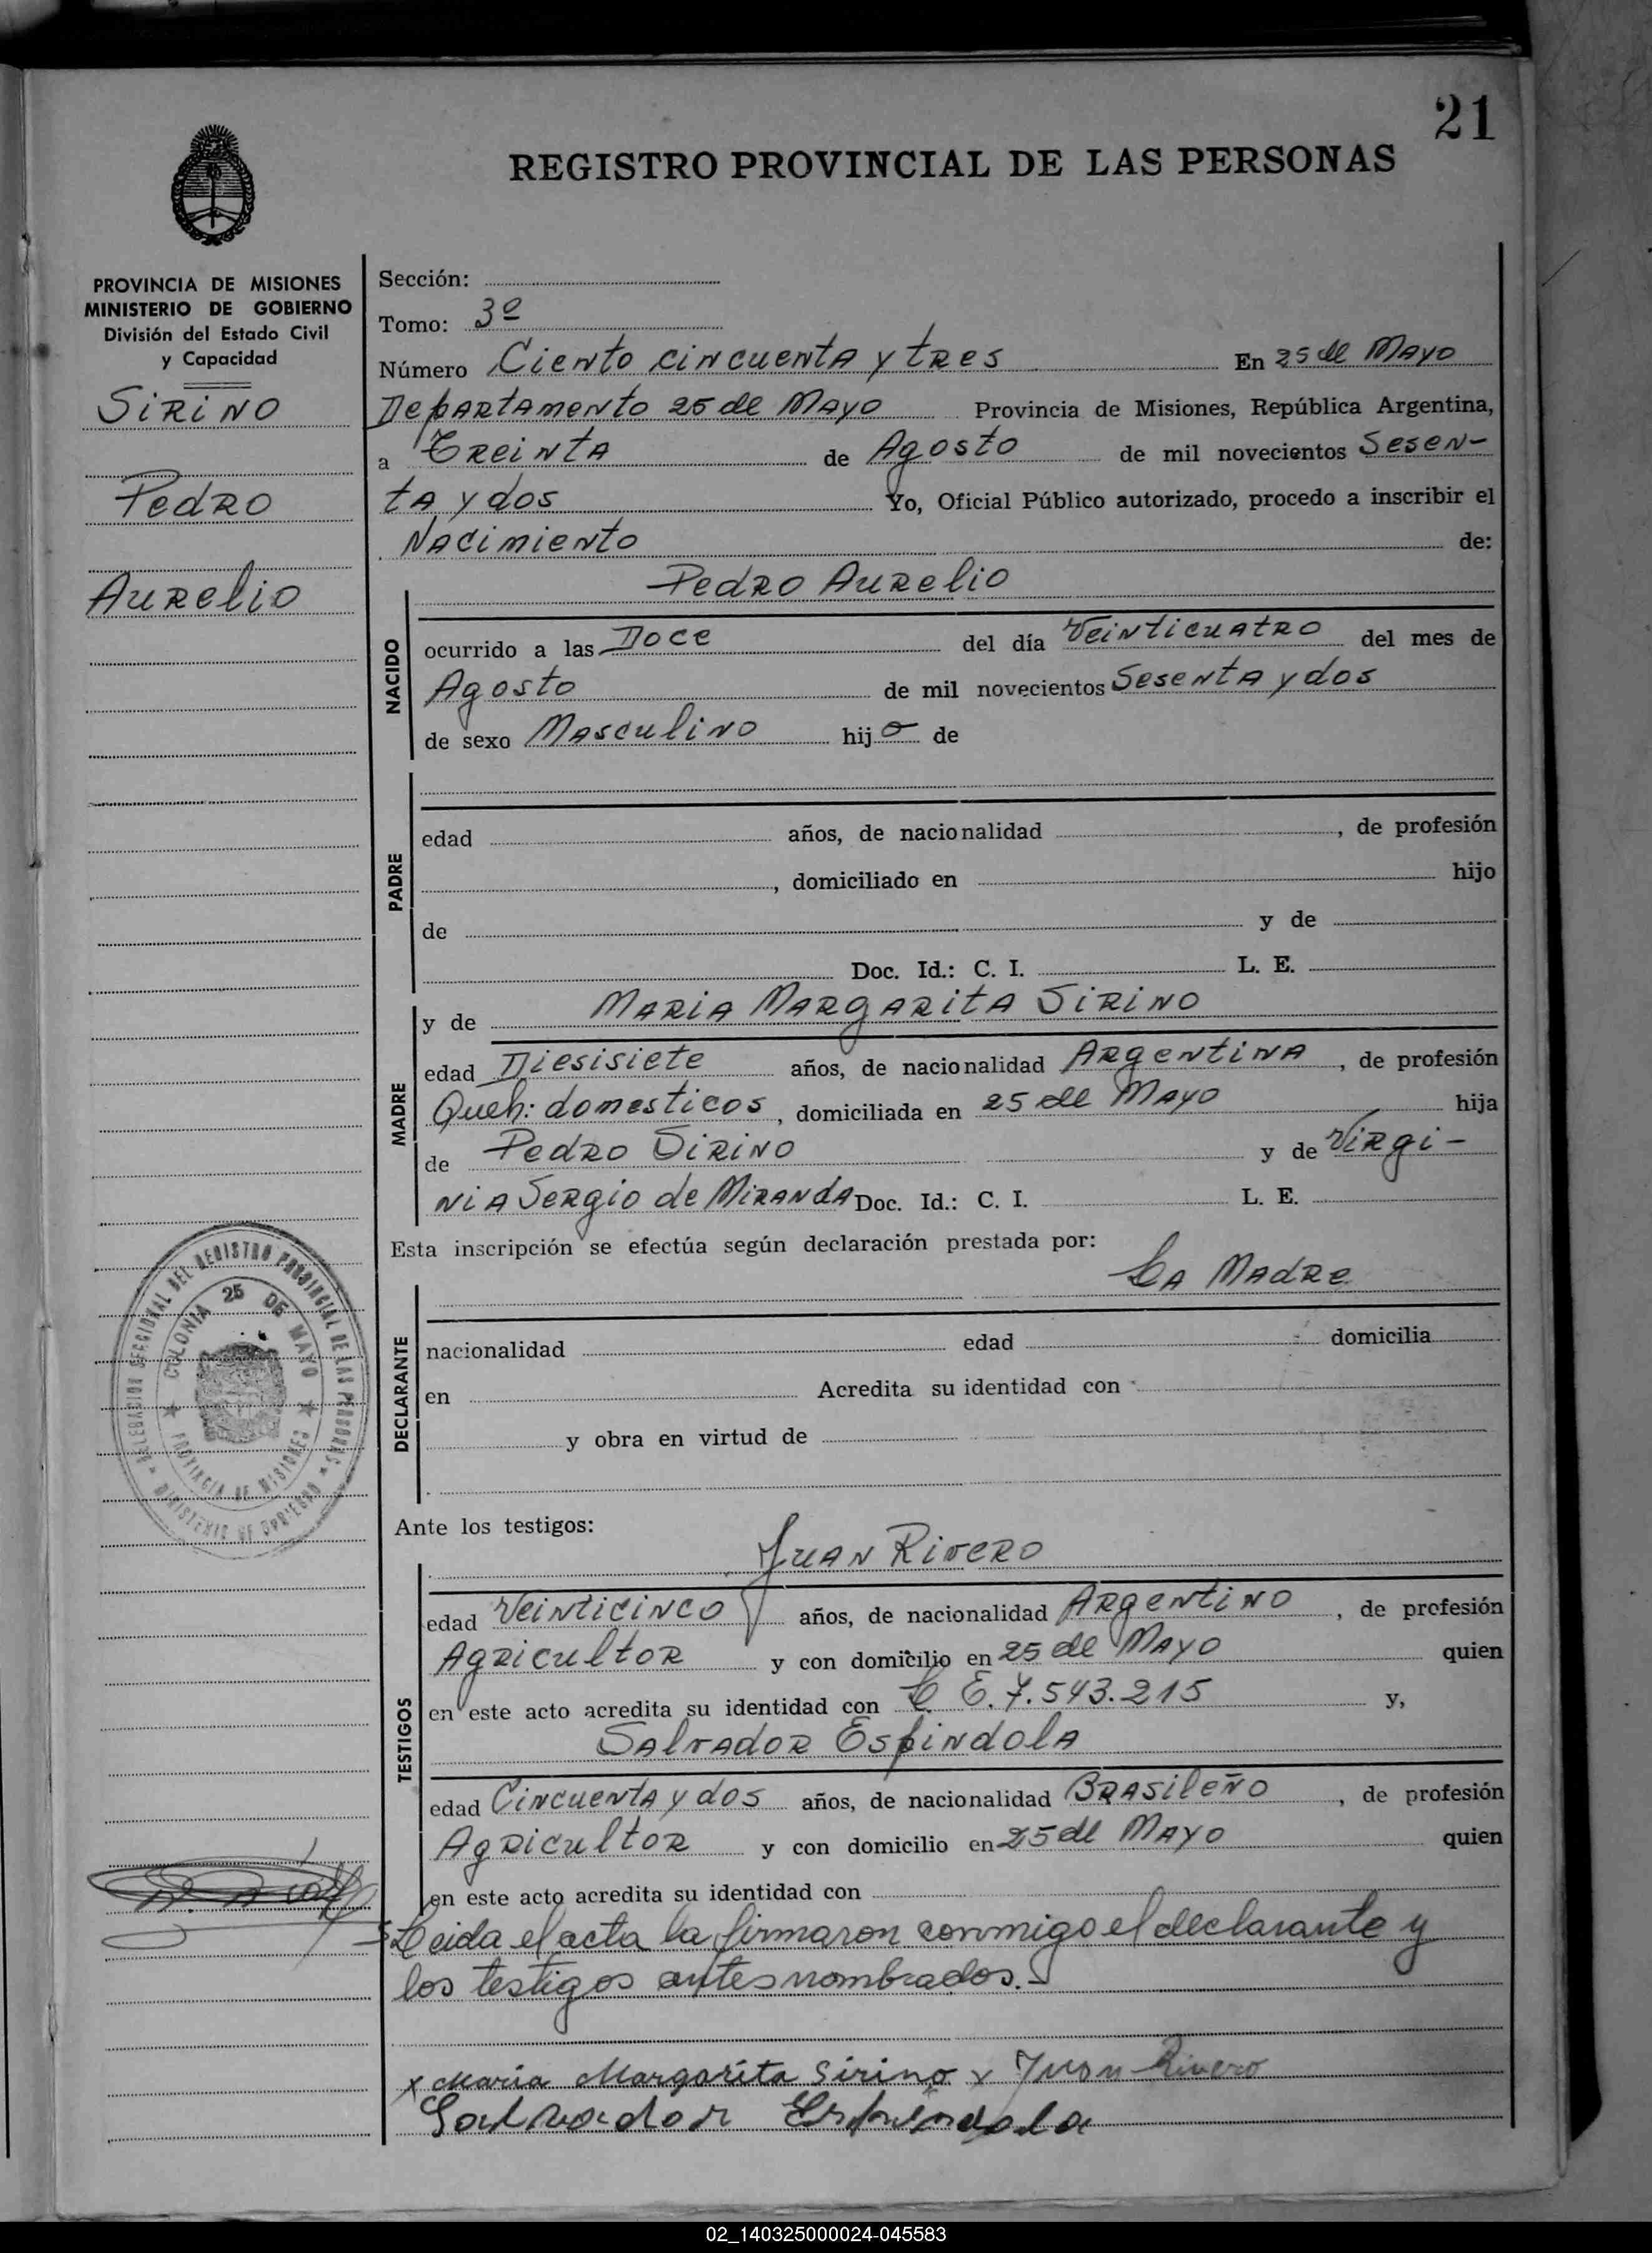 21
REGISTRO PROVINCIAL DE LAS PERSONAS
PROVINCIA DE MISIONES
MINISTERIO DE GOBIERNO
División del Estado Civil
y Capacidad
SIRINO
Pedro
Aurelio
Sección:
Tomo: 3º
Número Ciento cincuenta y tres En 25 de Mayo
Departamento 25 de Mayo Provincia de Misiones, República Argentina,
a Treinta de Agosto de mil novecientos Sesen-
ta y dos Yo, Oficial Público autorizado, procedo a inscribir el
Nacimiento de:
NACIDO
Pedro Aurelio
ocurrido a las Doce del día Veinticuatro del mes de
Agosto de mil novecientos Sesenta y dos
de sexo Masculino hijo de
PADRE
edad años, de nacionalidad , de profesión
, domiciliado en hijo
de y de
Doc. Id.: C. I. L. E.
MADRE
y de Maria Margarita Sirino
edad Diesisiete años, de nacionalidad Argentina, de profesión
Queh: domesticos, domiciliada en 25 de Mayo hija
de Pedro Sirino y de Virgi-
nia Sergio de Miranda Doc. Id.: C. I. L. E.
Esta inscripción se efectúa según declaración prestada por:
La Madre
DECLARANTE
nacionalidad edad domicilia
en Acredita su identidad con
y obra en virtud de
DELEGACION SECCIONAL DEL REGISTRO PROVINCIAL DE LAS PERSONAS
MINISTERIO DE GOBIERNO
COLONIA 25 DE MAYO
PROVINCIA DE MISIONES
Ante los testigos:
TESTIGOS
Juan Rivero
edad Veinticinco años, de nacionalidad Argentino, de profesión
Agricultor y con domicilio en 25 de Mayo quien
en este acto acredita su identidad con L. E. 7.543.215 y,
Salvador Espindola
edad Cincuenta y dos años, de nacionalidad Brasileño, de profesión
Agricultor y con domicilio en 25 de Mayo quien
en este acto acredita su identidad con
Leida el acta la firmaron conmigo el declarante y
los testigos antes nombrados.-
x Maria Margarita Sirino x Juan Rivero
Salvador Espindola
02_140325000024-045583